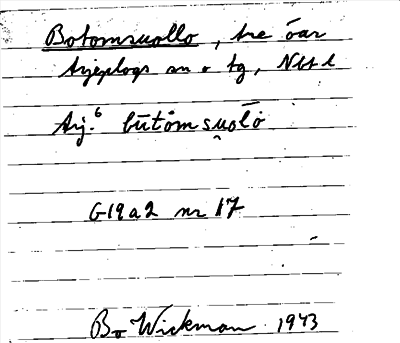 Botomsuollo, tre öar
Arjeplogs sn o tg, Nbt l
Arj.⁶ būtōmsu̯olō
G19a2 nr 17
Bo Wickman 1943